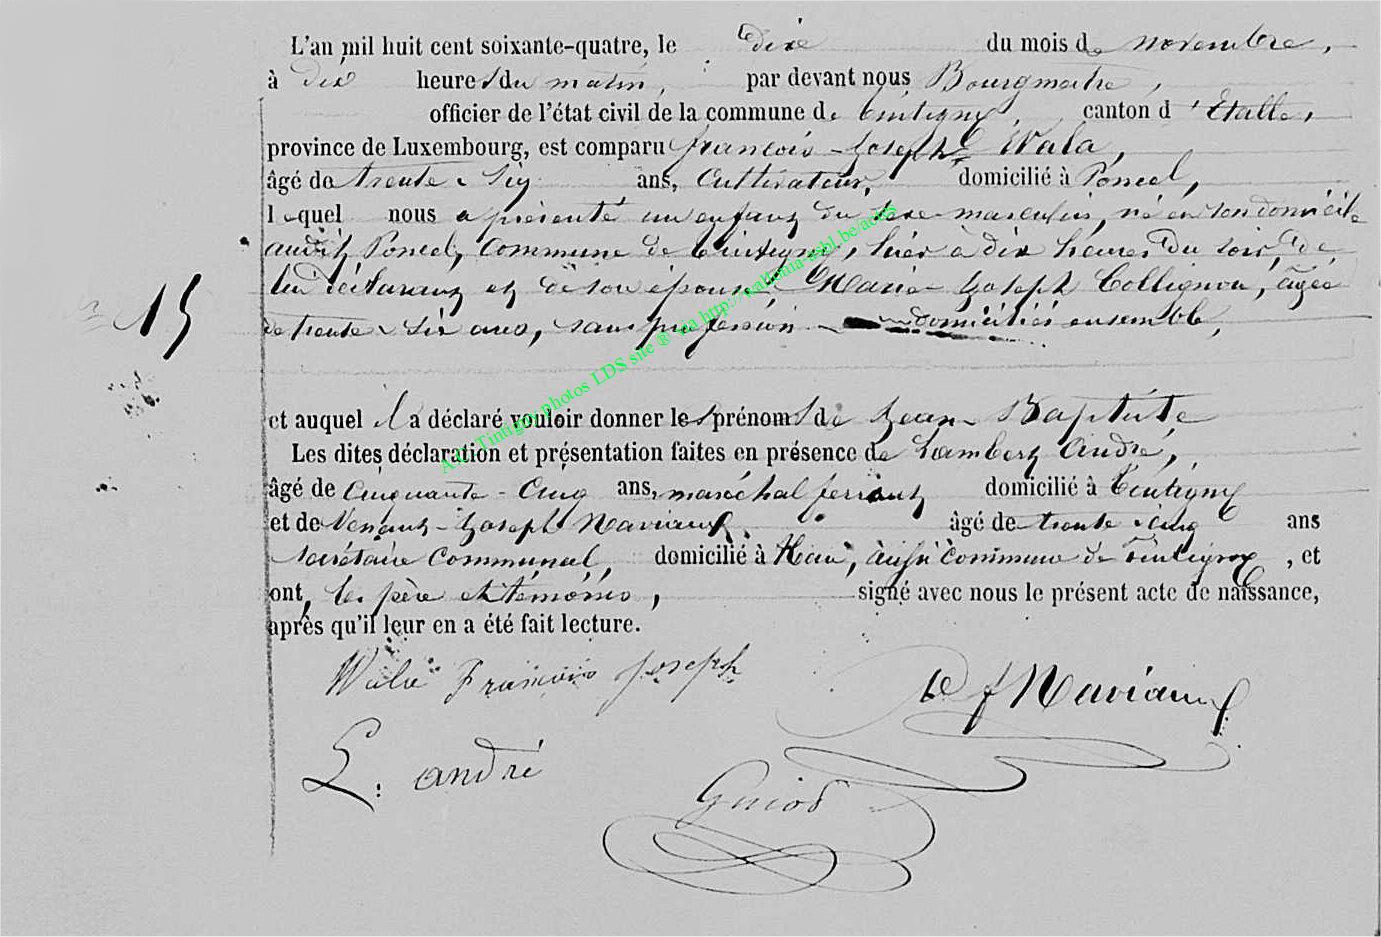 L'an mil huit cent soixante-quatre, le dix du mois de novembre,
à dix heures du matin, par devant nous, Bourgmestre,
officier de l'état civil de la commune de Tintigny, canton d'Etalle,
province de Luxembourg, est comparu françois-Joseph Wala,
âgé de trente-six ans, Cultivateur, domicilié à Poncel,
lequel nous a présenté un enfant du sexe masculin, né en son domicile
audit Poncel, Commune de Tintigny, hier à dix heures du soir, de
lui déclarant et de son épouse, Marie-Joseph Collignon, âgée
15
de trente-six ans, sans profession domiciliés ensemble,
et auquel il a déclaré vouloir donner les prénoms de Jean-Baptiste
Les dites déclaration et présentation faites en présence de Lambert André,
âgé de Cinquante-Cinq ans, maréchal ferrant domicilié à Tintigny
et de -Joseph Naviaux âgé de trente-cinq ans
secrétaire Communal, domicilié à Han, commune de Tintigny, et
ont, le père et témoins, signé avec nous le présent acte de naissance,
après qu'il leur en a été fait lecture.
Wala François joseph
V J Naviaux
L. andré
Guiot
A.C. Tintigny photos LDS site ® via http://wallonia-asbl.be/actes